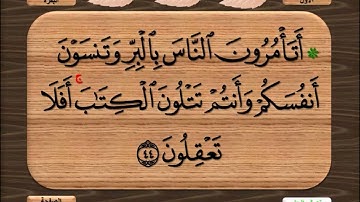 أَتَأْمُرُونَ ٱلنَّاسَ بِٱلْبِرِّ وَتَنسَوْنَ
أَنفُسَكُمْ وَأَنتُمْ تَتْلُونَ ٱلْكِتَٰبَ ۚ أَفَلَا
تَعْقِلُونَ ٤٤